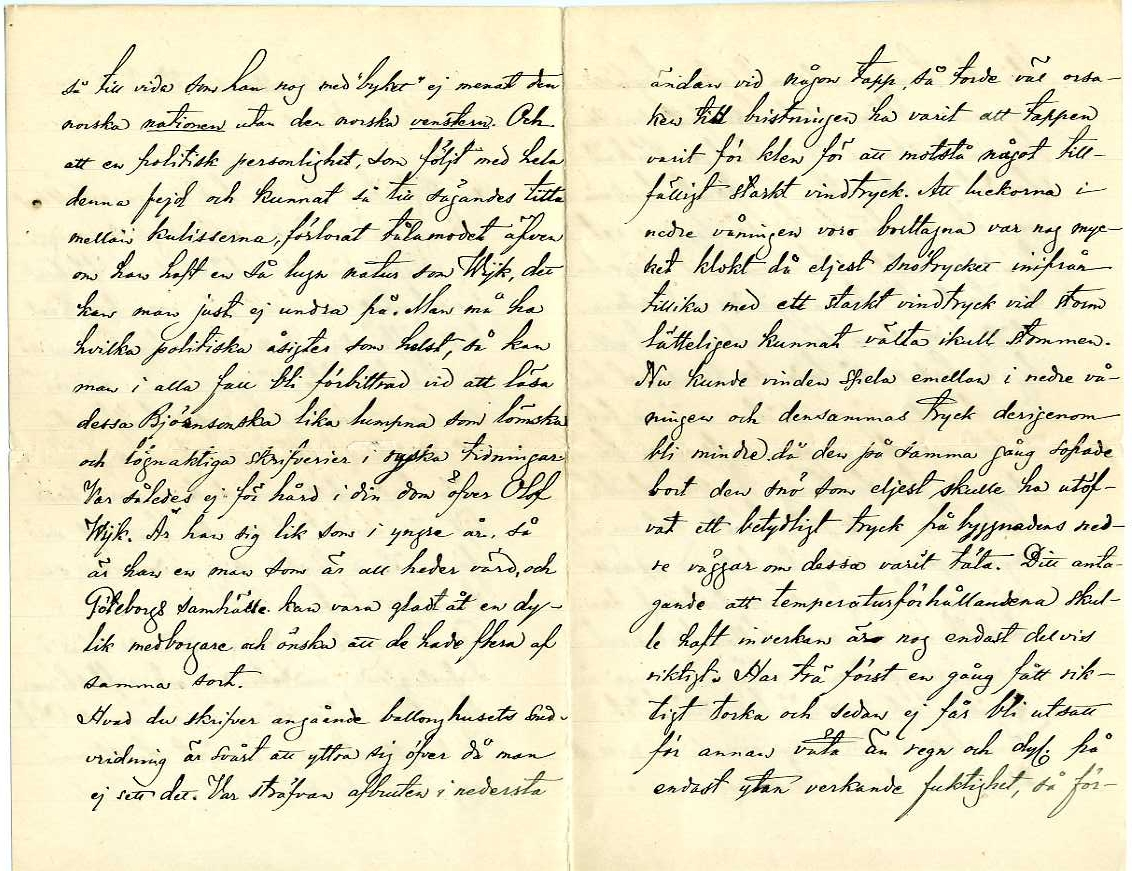 så till vida som han nog med "byket" ej menat den
norska nationen utan den norska venstern. Och
att en politisk personlighet, som följt med hela
denna fejd och kunnat så till sägandes titta
mellan kulisserna, förlorat tålamodet äfven
om han haft en så lugn natur som Wijk, det
kan man just ej undra på. Man må ha
hvilka politiska åsigter som helst, så kan
man i alla fall bli förbittrad vid att läsa
dessa Björnsonska lika lumpna som lömska
och lögnaktiga skrifverier i ryska tidningar.
Var således ej för hård i din dom öfver Olof
Wijk. Är han sig lik som i yngre år, så
är han en man som är all heder värd, och
Göteborgs samhälle kan vara gladt åt en dy-
lik medborgare och önska att de hade flera af
samma sort.
Hvad du skrifver angående ballonghusets
vridning är svårt att yttra sig öfver då man
ej sett det. Var sträfvan afbruten i nedersta
ändan vid någon tapp, så torde väl orsa-
ken till bristningen ha varit att tappen
varit för klen för att motstå något till-
fälligt starkt vindtryck. Att luckorna i
nedre våningen voro borttagna var nog myc-
ket klokt då eljest snötrycket inifrån
tillika med ett starkt vindtryck vid storm
lätteligen kunnat välta ikull stommen.
Nu kunde vinden spela emellan i nedre vå-
ningen och densammas tryck derigenom
bli mindre då den på samma gång sopade
bort den snö som eljest skulle ha utöf-
vat ett betydligt tryck på byggnadens ned-
re väggar om dessa varit täta. Ditt anta-
gande att temperaturförhållandena skul-
le haft inverkan är nog endast delvis
riktigt. Har trä först en gång fått rik-
tigt torka och sedan ej får bli utsatt
för annan väta än regn och dyl. på
endast ytan verkande fuktighet, så för-